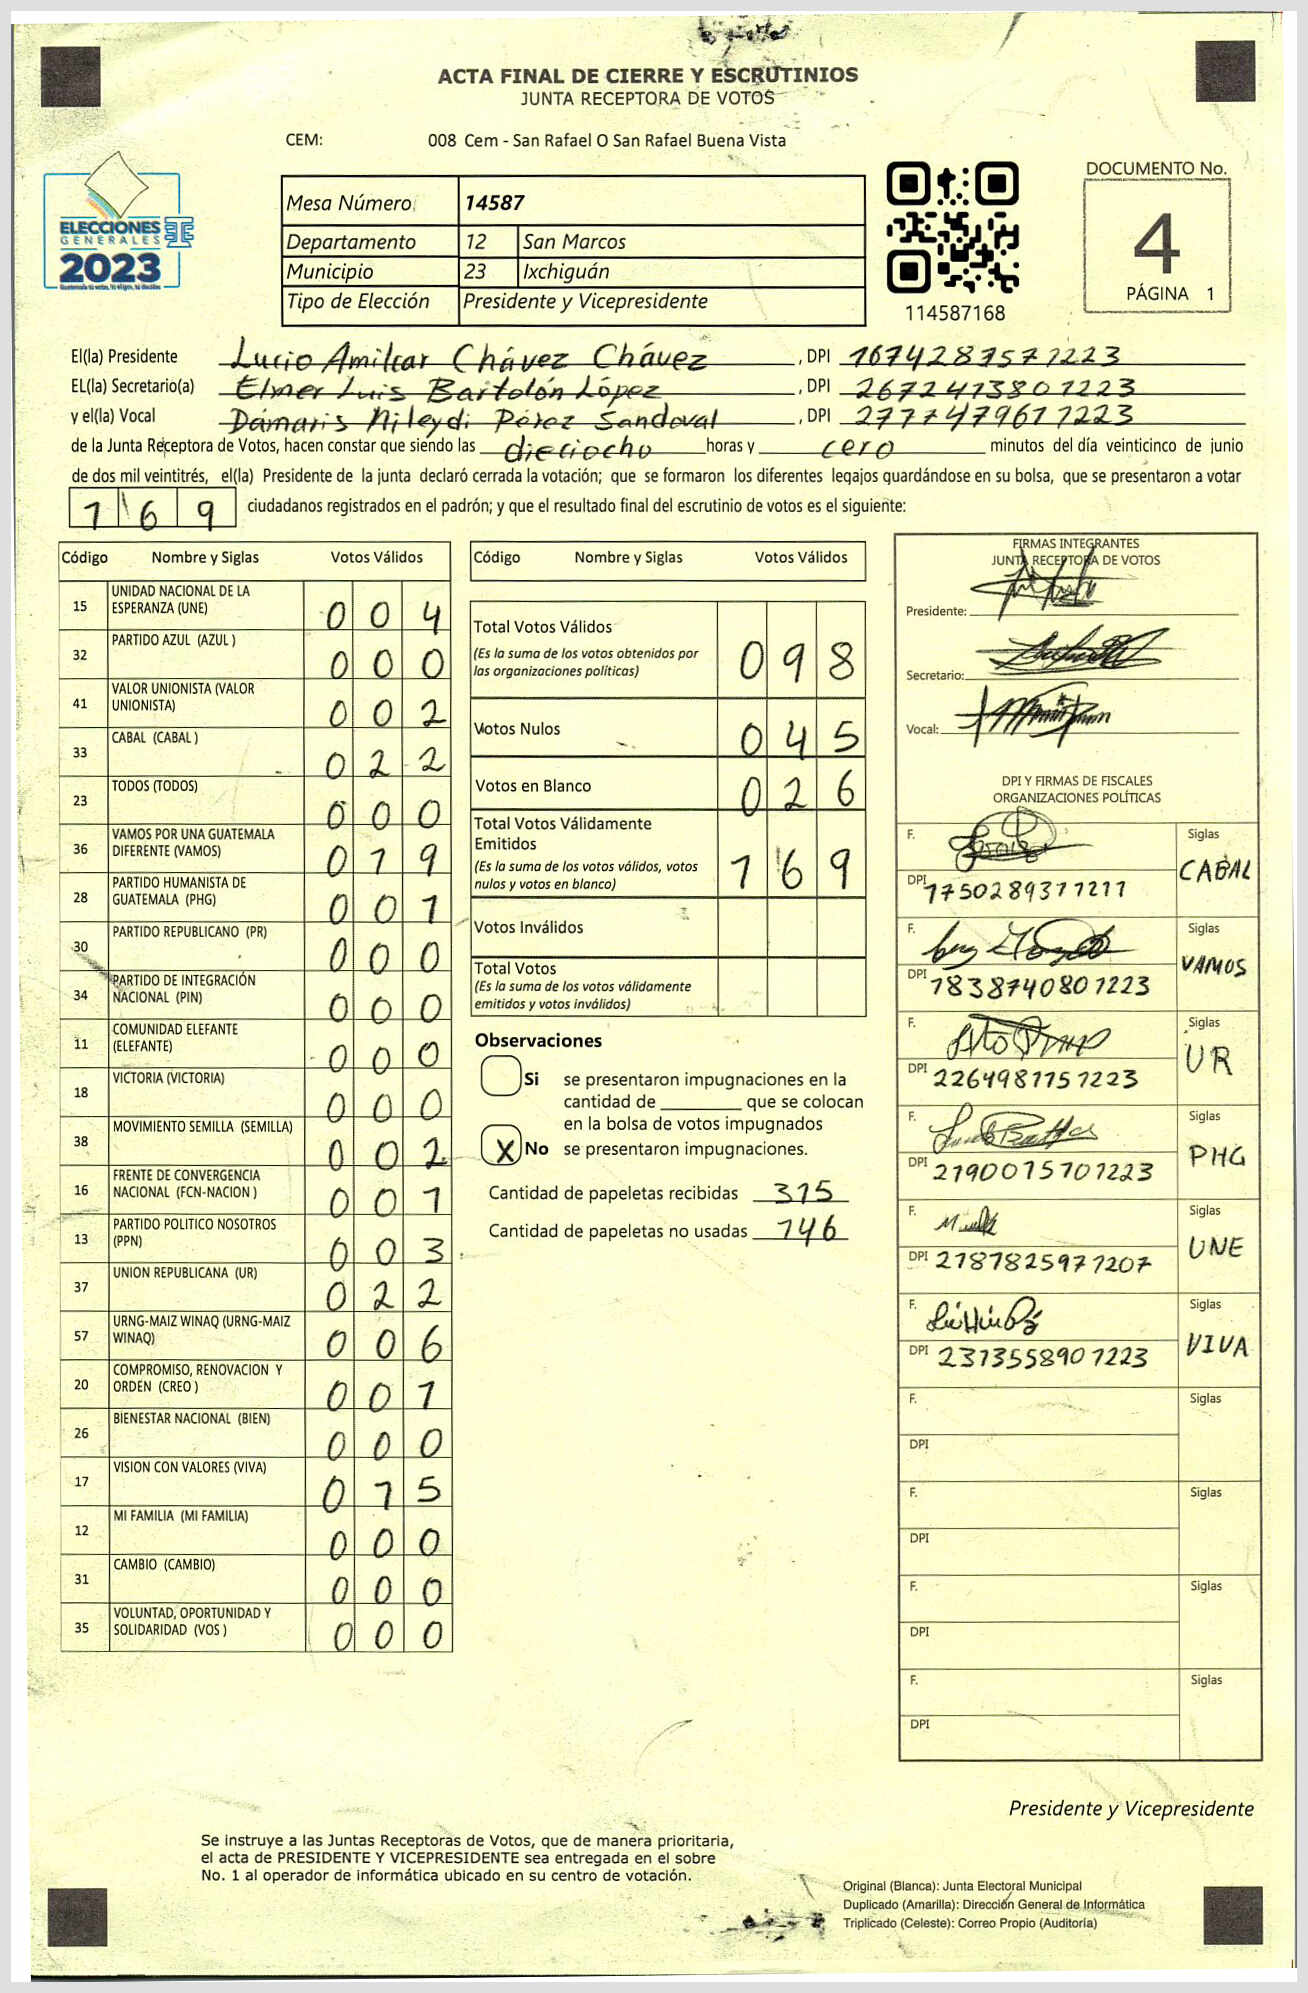 ACTA FINAL DE CIERRE Y ESCRUTINIOS
JUNTA RECEPTORA DE VOTOS
CEM: 008 Cem - San Rafael O San Rafael Buena Vista
ELECCIONES
GENERALES
2023
Mesa Número: 14587
Departamento 12 San Marcos
Municipio 23 Ixchiguán
Tipo de Elección Presidente y Vicepresidente
114587168
DOCUMENTO No.
4
PÁGINA 1
El(la) Presidente Lucio Amilcar Chávez Chávez, DPI 1674287571223
EL(la) Secretario(a) Elmer Luis Bartolón López, DPI 2672413801223
y el(la) Vocal Dámaris Nileydi Pérez Sandoval, DPI 2777479611223
de la Junta Receptora de Votos, hacen constar que siendo las dieciocho horas y cero minutos del día veinticinco de junio
de dos mil veintitrés, el(la) Presidente de la junta declaró cerrada la votación; que se formaron los diferentes legajos guardándose en su bolsa, que se presentaron a votar
169 ciudadanos registrados en el padrón; y que el resultado final del escrutinio de votos es el siguiente:
Código Nombre y Siglas Votos Válidos
15 UNIDAD NACIONAL DE LA ESPERANZA (UNE) 004
32 PARTIDO AZUL (AZUL ) 000
41 VALOR UNIONISTA (VALOR UNIONISTA) 002
33 CABAL (CABAL ) 022
23 TODOS (TODOS) 000
36 VAMOS POR UNA GUATEMALA DIFERENTE (VAMOS) 019
28 PARTIDO HUMANISTA DE GUATEMALA (PHG) 001
30 PARTIDO REPUBLICANO (PR) 000
34 PARTIDO DE INTEGRACIÓN NACIONAL (PIN) 000
11 COMUNIDAD ELEFANTE (ELEFANTE) 000
18 VICTORIA (VICTORIA) 000
38 MOVIMIENTO SEMILLA (SEMILLA) 002
16 FRENTE DE CONVERGENCIA NACIONAL (FCN-NACION ) 001
13 PARTIDO POLITICO NOSOTROS (PPN) 003
37 UNION REPUBLICANA (UR) 022
57 URNG-MAIZ WINAQ (URNG-MAIZ WINAQ) 006
20 COMPROMISO, RENOVACION Y ORDEN (CREO ) 001
26 BIENESTAR NACIONAL (BIEN) 000
17 VISION CON VALORES (VIVA) 015
12 MI FAMILIA (MI FAMILIA) 000
31 CAMBIO (CAMBIO) 000
35 VOLUNTAD, OPORTUNIDAD Y SOLIDARIDAD (VOS ) 000
Código Nombre y Siglas Votos Válidos
Total Votos Válidos 098
(Es la suma de los votos obtenidos por
las organizaciones políticas)
Votos Nulos 045
Votos en Blanco 026
Total Votos Válidamente
Emitidos 169
(Es la suma de los votos válidos, votos
nulos y votos en blanco)
Votos Inválidos
Total Votos
(Es la suma de los votos válidamente
emitidos y votos inválidos)
Observaciones
Si se presentaron impugnaciones en la
cantidad de ________ que se colocan
en la bolsa de votos impugnados
X No se presentaron impugnaciones.
Cantidad de papeletas recibidas 315
Cantidad de papeletas no usadas 146
FIRMAS INTEGRANTES
JUNTA RECEPTORA DE VOTOS
Presidente:
Secretario:
Vocal:
DPI Y FIRMAS DE FISCALES
ORGANIZACIONES POLÍTICAS
F. Siglas
DPI 1750289371211 CABAL
F. Siglas
DPI 1838740801223 VAMOS
F. Siglas
DPI 2264981151223 UR
F. Siglas
DPI 2190015701223 PHG
F. Siglas
DPI 2187825971207 UNE
F. Siglas
DPI 2313558901223 VIVA
F. Siglas
DPI
F. Siglas
DPI
F. Siglas
DPI
F. Siglas
DPI
Presidente y Vicepresidente
Se instruye a las Juntas Receptoras de Votos, que de manera prioritaria,
el acta de PRESIDENTE Y VICEPRESIDENTE sea entregada en el sobre
No. 1 al operador de informática ubicado en su centro de votación.
Original (Blanca): Junta Electoral Municipal
Duplicado (Amarilla): Dirección General de Informática
Triplicado (Celeste): Correo Propio (Auditoría)